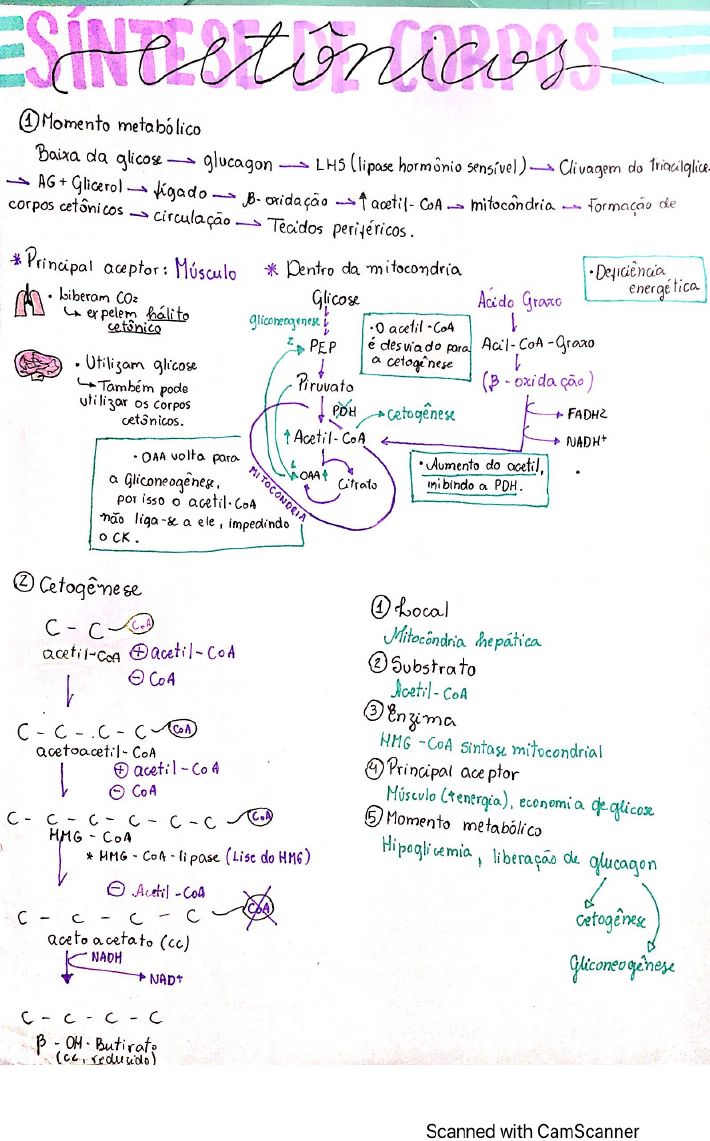 SÍNTESE DE CORPOS
cetônicos
① Momento metabólico
Baixa da glicose → glucagon → LHS (lipase hormônio sensível) → Clivagem do triacilglice.
→ AG + Glicerol → fígado → β-oxidação → ↑ acetil-CoA → mitocôndria → Formação de
corpos cetônicos → circulação → Tecidos periféricos.
* Principal aceptor: Músculo
• Liberam CO2
↳ expelem hálito
cetônico
• Utilizam glicose
↳ Também pode
utilizar os corpos
cetônicos.
• OAA volta para
a Gliconeogênese,
por isso o acetil-CoA
não liga-se a ele, impedindo
o CK.
* Dentro da mitocôndria
Glicose
gliconeogenese
2
PEP
Piruvato
PDH
Cetogênese
↑ Acetil-CoA
1
OAA↑
Citrato
MITOCÔNDRIA
• O acetil-CoA
é desviado para
a cetogênese
• Deficiência
energética
Ácido Graxo
Acil-CoA-Graxo
(β-oxidação)
FADH2
NADH+
• Aumento do acetil,
inibindo a PDH.
② Cetogênese
C - C CoA
acetil-CoA ⊕ acetil-CoA
⊖ CoA
C - C - C - C CoA
acetoacetil-CoA
⊕ acetil-CoA
⊖ CoA
C - C - C - C - C - C CoA
HMG-CoA
* HMG-CoA-lipase (Lise do HMG)
⊖ Acetil-CoA
C - C - C - C - C CoA
acetoacetato (cc)
NADH
NAD+
C - C - C - C
β-OH-Butirato
(cc, reduzido)
① Local
Mitocôndria hepática
② Substrato
Acetil-CoA
③ Enzima
HMG-CoA sintase mitocondrial
④ Principal aceptor
Músculo (↑energia), economia de glicose
⑤ Momento metabólico
Hipoglicemia, liberação de glucagon
Cetogênese
Gliconeogênese
Scanned with CamScanner